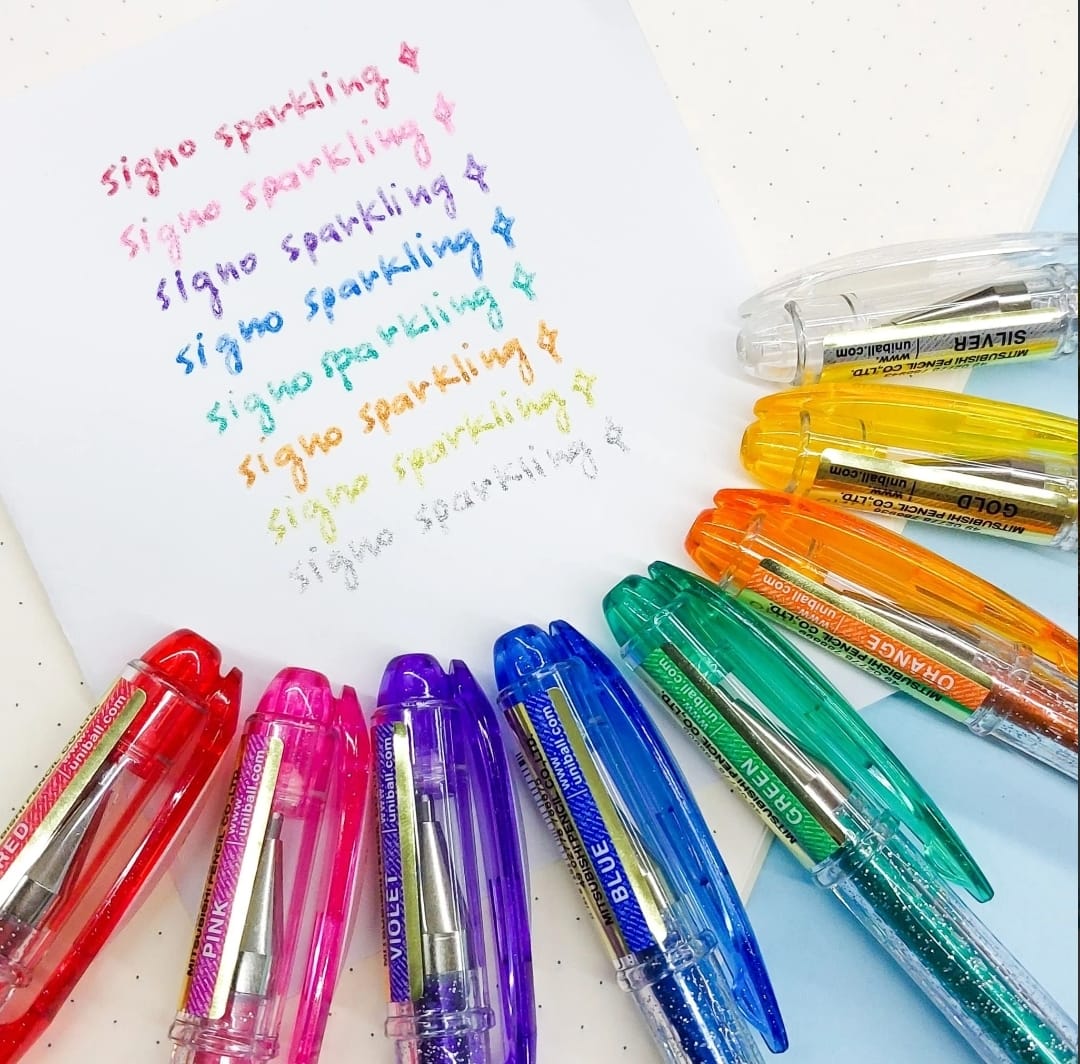 signo sparkling
signo sparkling
signo sparkling
signo sparkling
signo sparkling
signo sparkling
signo sparkling
signo sparkling
SILVER
www.
uniball.com
MITSUBISHI PENCIL CO.,LTD.
GOLD
www.
uniball.com
MITSUBISHI PENCIL CO.,LTD.
ORANGE
www.
uniball.com
MITSUBISHI PENCIL CO.,LTD.
GREEN
www.
uniball.com
MITSUBISHI PENCIL CO.,LTD.
BLUE
www.
uniball.com
MITSUBISHI PENCIL CO.,LTD.
VIOLET
www.
uniball.com
PINK
www.
uniball.com
MITSUBISHI PENCIL CO.,LTD.
RED
www.
uniball.com